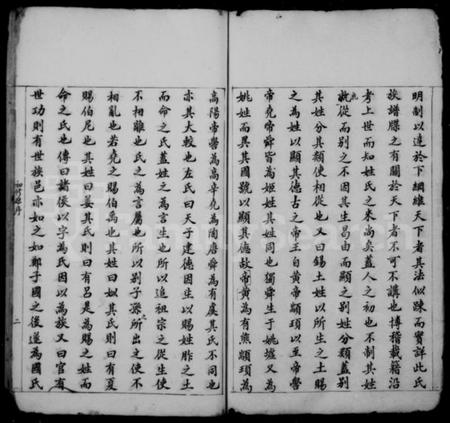 明制以達於下綱維天下者其法似踈而實詳此氏
族譜牒之有關於天下者不可不講也博稽載籍沿
考上世而知姓氏之來尚矣蓋人之初也不制其姓
就從而別之不因其生曷由而顯之別姓分類蓋別
其姓分其類使相從也又曰錫土姓以所生之土賜
之為姓以顯其德古之帝王自黄帝顓頊以至帝嚳
帝堯帝舜皆為姬姓其姓同也獨舜生于姚墟又為
姚姓而異其國號以顯其德故帝黄為有熊顓頊為
高陽帝嚳為高辛堯為陶唐舜為有虞其氏不同也
亦其大較也左氏曰天子建德因生以賜姓胙之土
而命之氏蓋姓之為言生也所以追祖宗之從生使
不相離也氏之為言屬也所以别子源所出之使不
相亂也若堯之賜伯禹也其姓曰姒其氏則曰有夏
賜伯夷也其姓曰姜其氏則曰有呂是為賜之姓而
命之氏也傳曰諸侯以字為氏因以為族又曰官有
世功則有世族邑亦如之如鄭子國之後遂為國氏
二